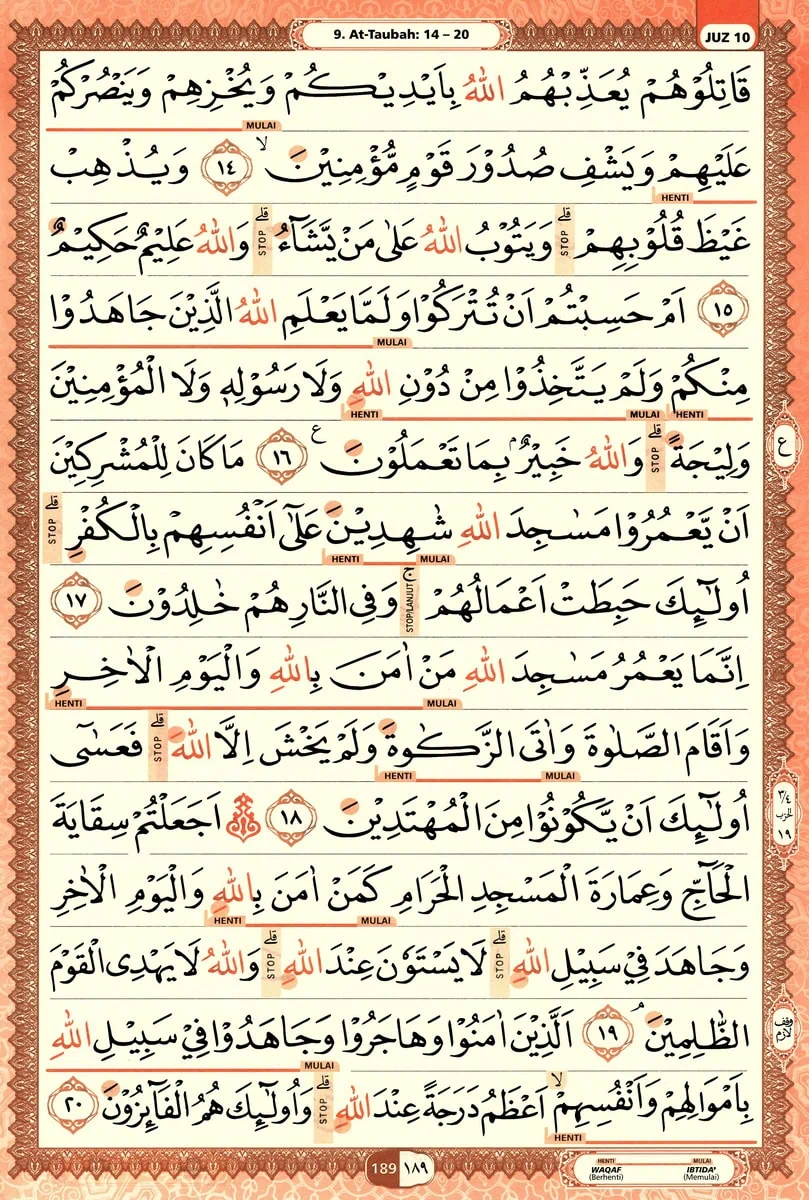 9. At-Taubah: 14 – 20
JUZ 10
قَاتِلُوْهُمْ يُعَذِّبْهُمُ اللّٰهُ بِاَيْدِيْكُمْ وَيُخْزِهِمْ وَيَنْصُرْكُمْ
MULAI
عَلَيْهِمْ وَيَشْفِ صُدُوْرَ قَوْمٍ مُّؤْمِنِيْنَۙ ١٤ وَيُذْهِبْ
HENTI
غَيْظَ قُلُوْبِهِمْۗ وَيَتُوْبُ اللّٰهُ عَلٰى مَنْ يَّشَاۤءُۗ وَاللّٰهُ عَلِيْمٌ حَكِيْمٌ
STOP STOP
١٥ اَمْ حَسِبْتُمْ اَنْ تُتْرَكُوْا وَلَمَّا يَعْلَمِ اللّٰهُ الَّذِيْنَ جَاهَدُوْا
MULAI
مِنْكُمْ وَلَمْ يَتَّخِذُوْا مِنْ دُوْنِ اللّٰهِ وَلَا رَسُوْلِهٖ وَلَا الْمُؤْمِنِيْنَ
HENTI MULAI HENTI
وَلِيْجَةًۗ وَاللّٰهُ خَبِيْرٌۢ بِمَا تَعْمَلُوْنَ ࣖ ١٦ مَا كَانَ لِلْمُشْرِكِيْنَ
STOP
ع
اَنْ يَّعْمُرُوْا مَسٰجِدَ اللّٰهِ شٰهِدِيْنَ عَلٰٓى اَنْفُسِهِمْ بِالْكُفْرِۗ
HENTI MULAI STOP
اُولٰۤىِٕكَ حَبِطَتْ اَعْمَالُهُمْۚ وَفِى النَّارِ هُمْ خٰلِدُوْنَ ١٧
STOP/LANJUT
اِنَّمَا يَعْمُرُ مَسٰجِدَ اللّٰهِ مَنْ اٰمَنَ بِاللّٰهِ وَالْيَوْمِ الْاٰخِرِ
HENTI MULAI
وَاَقَامَ الصَّلٰوةَ وَاٰتَى الزَّكٰوةَ وَلَمْ يَخْشَ اِلَّا اللّٰهَۗ فَعَسٰٓى
HENTI MULAI STOP
اُولٰۤىِٕكَ اَنْ يَّكُوْنُوْا مِنَ الْمُهْتَدِيْنَ ١٨ ۞ اَجَعَلْتُمْ سِقَايَةَ
٣/٤ الحزب ١٩
الْحَاۤجِّ وَعِمَارَةَ الْمَسْجِدِ الْحَرَامِ كَمَنْ اٰمَنَ بِاللّٰهِ وَالْيَوْمِ الْاٰخِرِ
HENTI MULAI
وَجَاهَدَ فِيْ سَبِيْلِ اللّٰهِۗ لَا يَسْتَوٗنَ عِنْدَ اللّٰهِۗ وَاللّٰهُ لَا يَهْدِى الْقَوْمَ
STOP STOP
الظّٰلِمِيْنَۘ ١٩ اَلَّذِيْنَ اٰمَنُوْا وَهَاجَرُوْا وَجَاهَدُوْا فِيْ سَبِيْلِ اللّٰهِ
وقف لازم
MULAI
بِاَمْوَالِهِمْ وَاَنْفُسِهِمْۙ اَعْظَمُ دَرَجَةً عِنْدَ اللّٰهِۗ وَاُولٰۤىِٕكَ هُمُ الْفَاۤىِٕزُوْنَ ٢٠
HENTI STOP
189 ١٨٩
HENTI MULAI
WAQAF IBTIDA'
(Berhenti) (Memulai)